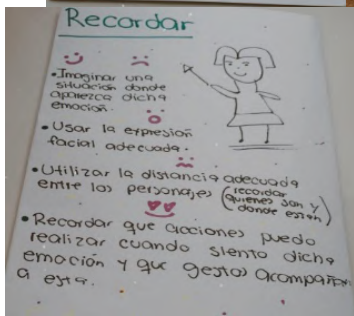 Recordar
• Imaginar una
situación donde
aparezca dicha
emoción.
• Usar la expresión
facial adecuada.
• Utilizar la distancia adecuada
entre los personajes (recordar
quienes son y
donde están)
• Recordar que acciones puedo
realizar cuando siento dicha
emoción y que gestos acompañan
a esta.